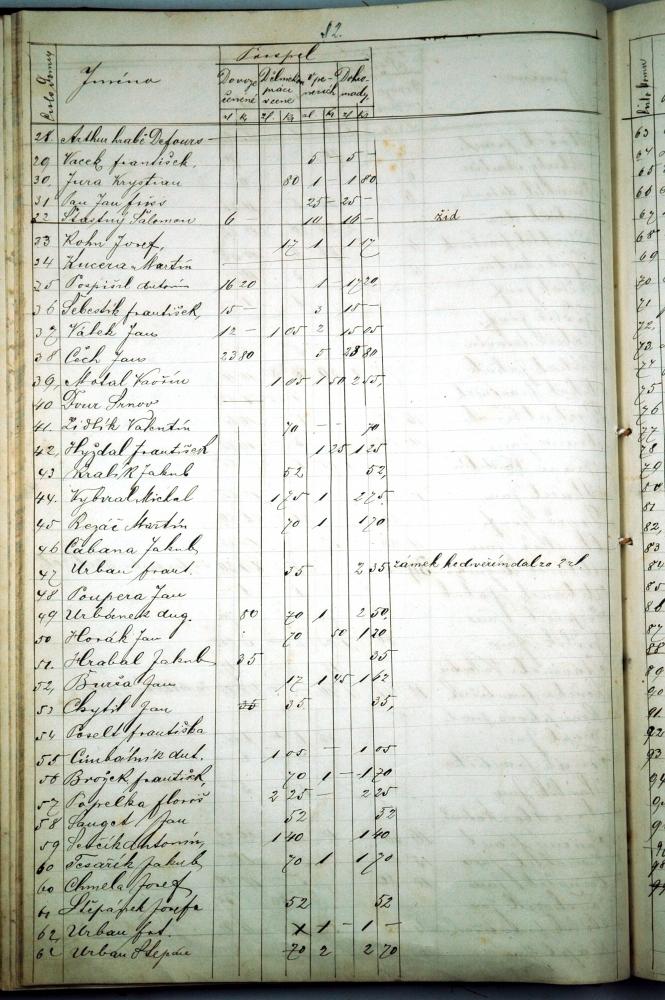 52.
Číslo domu Jméno Přispěl
Dovoze čeněné Dělnickou prácí v ceně V pe- nězích Dohro- mady
zl kr zl kr zl kr zl kr
28. Arthur hrabě Defours —
29 Vacek František. 5 - 5 -
30. Jura Krystian 80 1 - 1 80
31 Pan Jan friss 25 - 25 -
32 Šťastný Salomon 6 - 10 - 16 - žid
33 Kohn Josef, 17 1 1 17
34 Kučera Martin
35 Pospíšil Antonín 16 20 1 17 20
36 Šebestík František, 15 - 3 15 -
37 Válek Jan 12 - 1 05 2 15 05
38 Čech Jan 23 80 5 28 80
39, Motal 1 05 1 50 2 55,
40 Dvur
41. Židlík Valentin 70 - - 70
42. Hyždal František 1 25 1 25
43 Králík Jakub 52 52,
44. Vybíral Michal 1 75 1 2 75
45 Řezáč Martin 70 1 1 70
46 Cabana Jakub
47 Urban frant. 35 2 35 zámek hedwerim dal zo 2 zl.
48 Poupera Jan
49 Urbánek Aug. 80 70 1 2 50
50 Horák Jan 70 50 1 20
51. Hrabal Jakub 35 35
52, Burša Jan 17 1 45 1 62
53 Chytil Jan 35 35 35,
54 Poselt Františka
55 Cimbálník Ant. 1 05 - 1 05
56 Brožek František, 70 1 - 1 70
57 Popelka floróš 2 25 - 2 25
58 Jan 52 52
59 Antonín, 1 40 1 40
60 Tesařík Jakub 70 1 1 70
60 Chmela Josef
61 Štěpánek Josefa 52 52
62, Urban frt. 1 1 - 1 -
62 Urban Štěpán 70 2 2 70
Číslo domu
63
64
65
66
67
68
69
70
71
72,
73.
74
75
76
77
78
79
80
81
82,
83
84
85
86
87
88
89
90
91
92
93
94